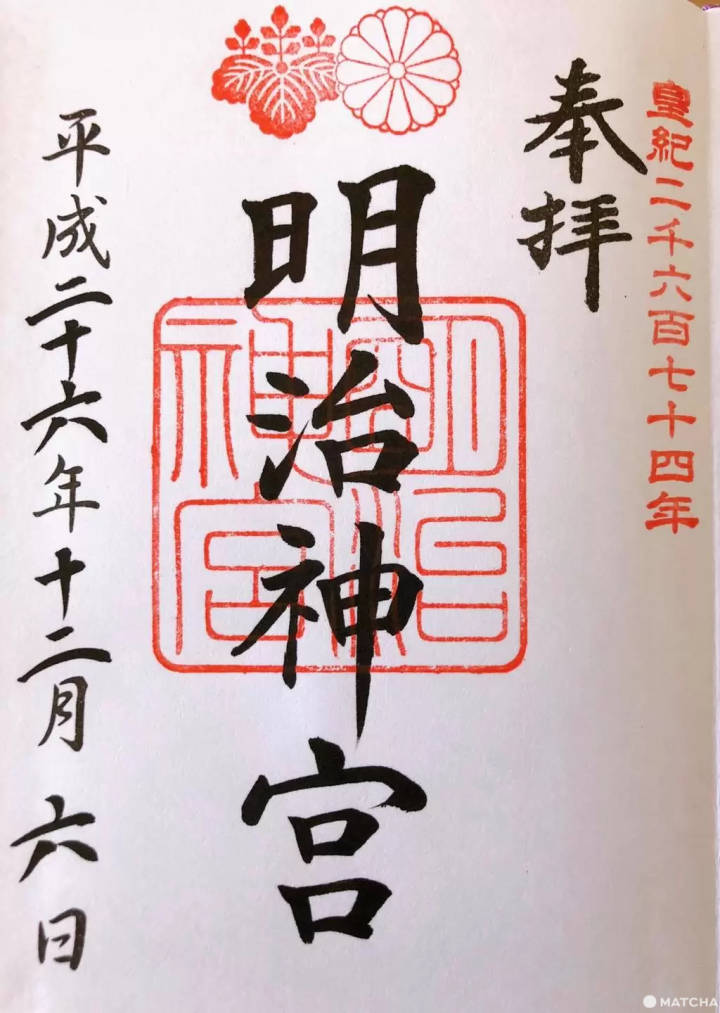 皇紀二千六百七十四年
奉拝
明治神宮
明治神宮
平成二十六年十二月六日
MATCHA